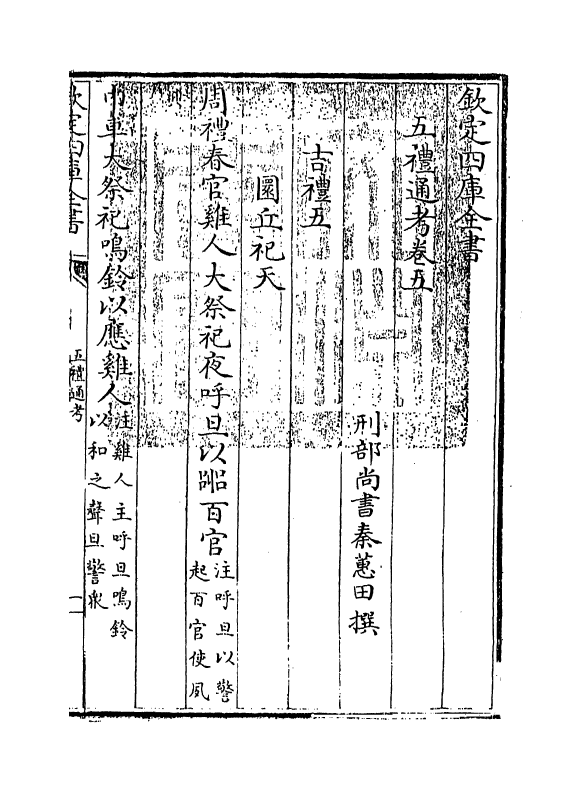 欽定四庫全書
五禮通考卷五
刑部尚書秦蕙田撰
吉禮五
圜丘祀天
周禮春官雞人大祭祀夜呼旦以嘂百官
注呼旦以警
起百官使夙
巾車大祭祀鳴鈴以應雞人
注雞人主呼旦鳴鈴
以和之聲旦警衆
欽定四庫全書
五禮通考
一